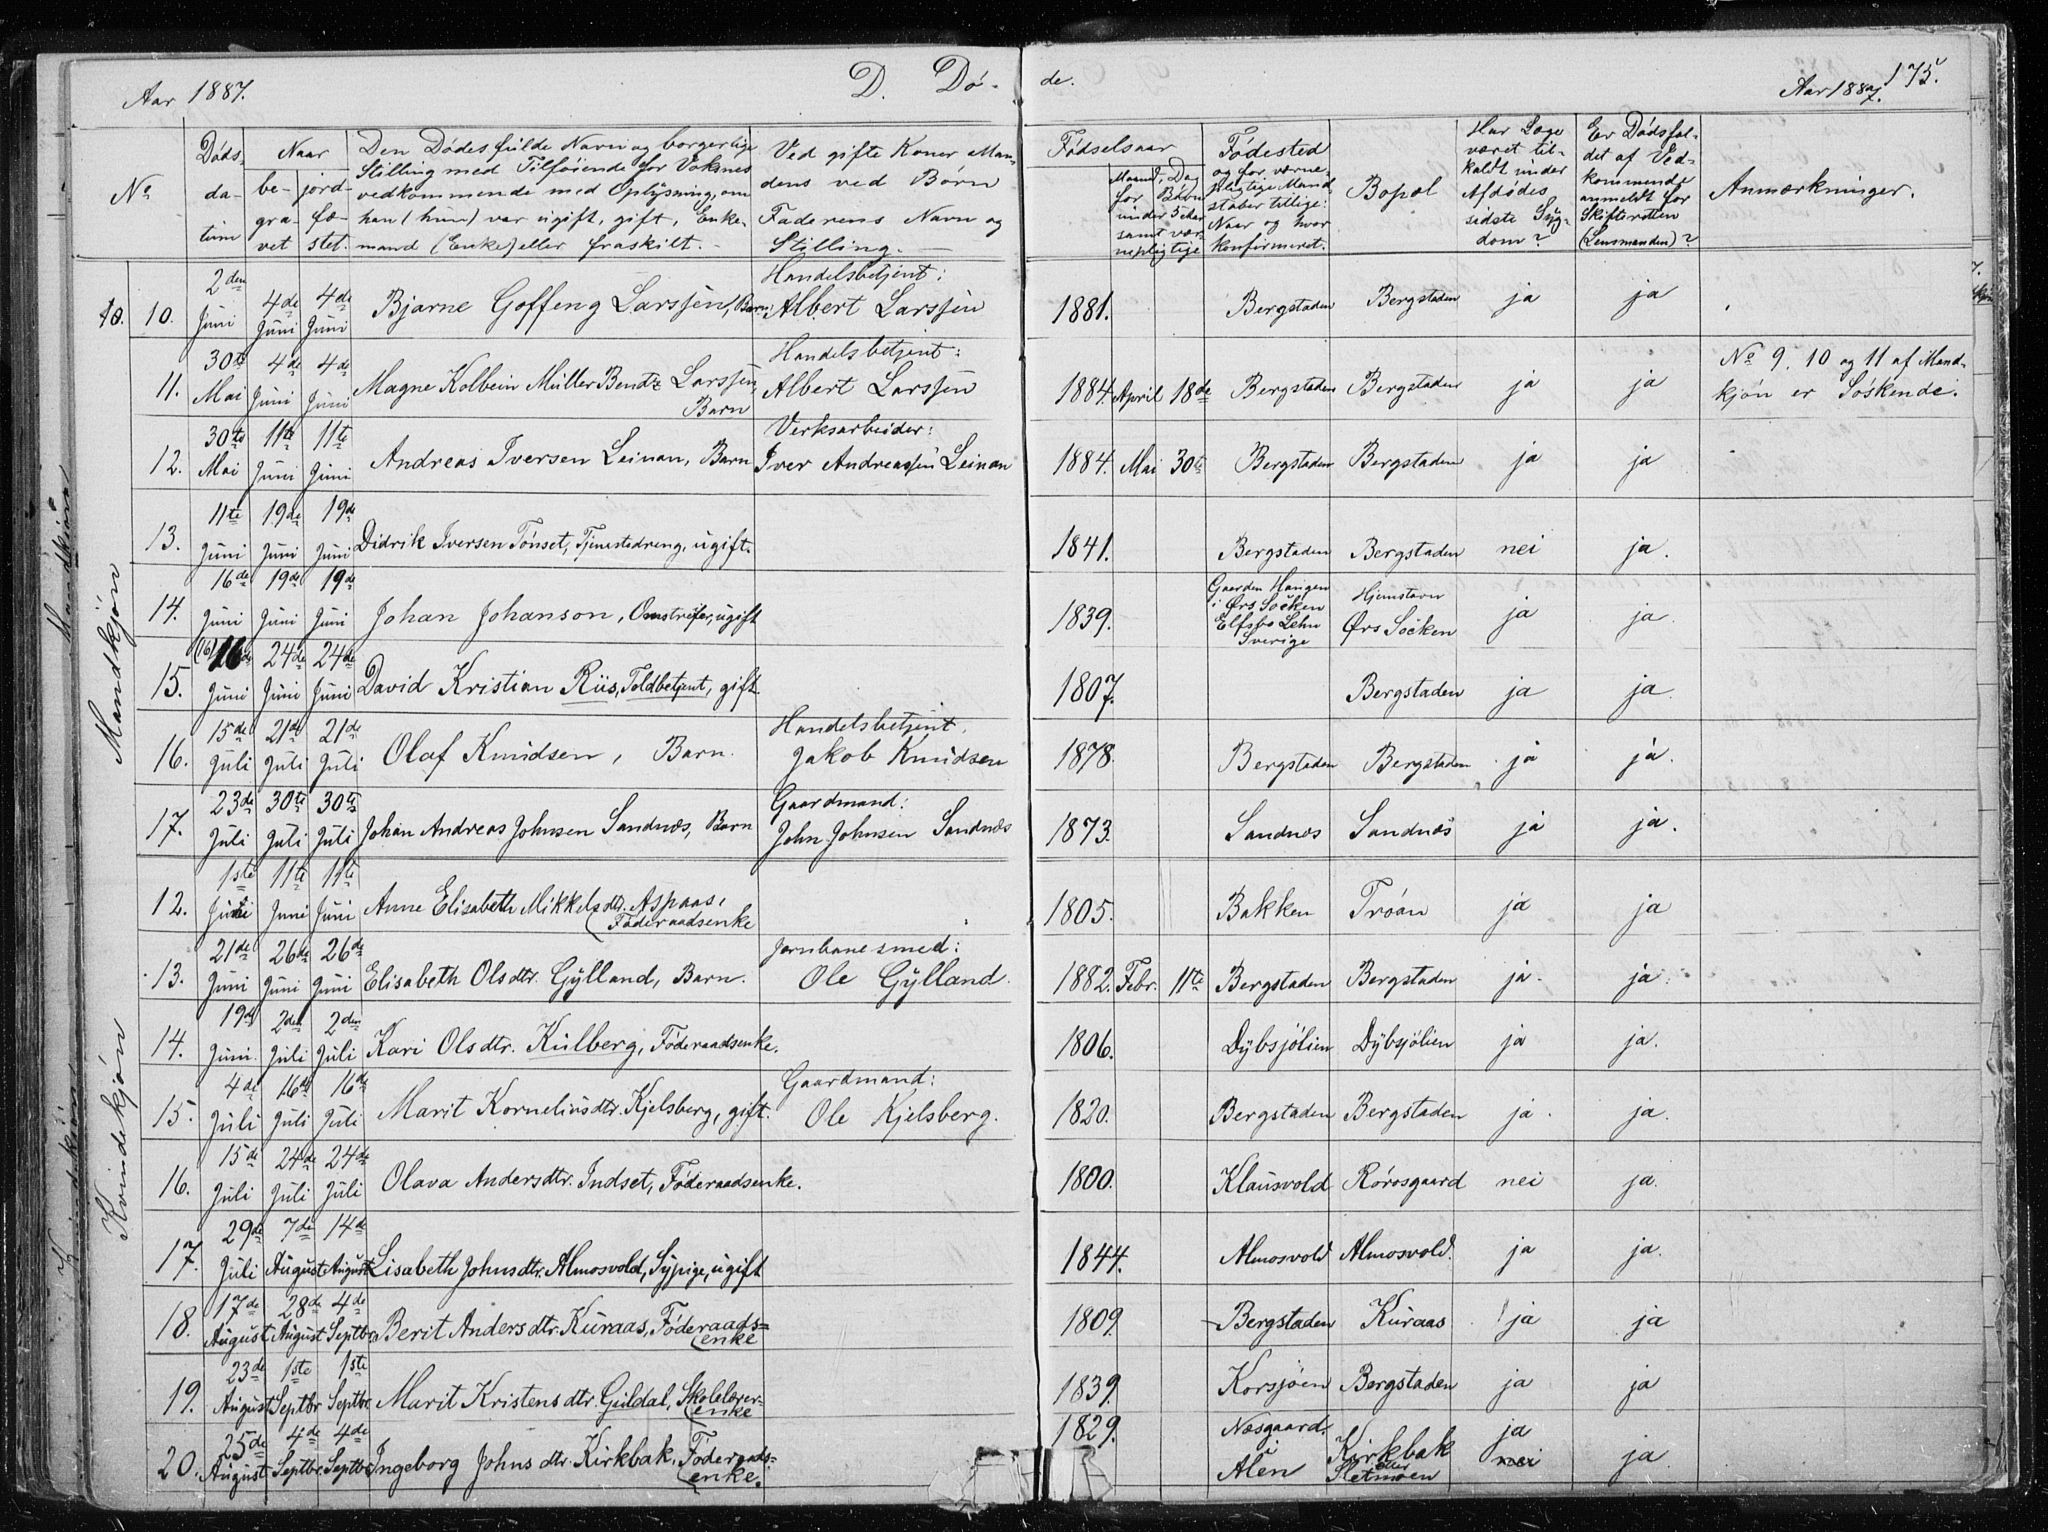 Aar 1887. D. Dö- de. Aar 1887. 175.
No
Döds-
da-
tum
Naar
be-
gra-
vet
jord-
fæ-
stet.
Den Dödes fulde Navn og borgerlige
Stilling med Tilföiende for Voksnes
vedkommende med Oplysning, om
han (hun) var ugift, gift, Enke-
mand (Enke) eller fraskilt.
Ved gifte Koner Man-
dens ved Börn
Faderens Navn og
Stilling.
Födselsaar
Maaned, Dag
for Börn
under 5 Aar
samt vær-
nepligtige
Födested
og for værne-
pligtige Mand-
skaber tillige:
Naar og hvor
konfirmeret.
Bopæl
Har Læge
været til-
kaldt under
Afdödes
sidste Syg-
dom?
Er Dödsfal-
det af Ved-
kommende
anmeldt for
Skifteretten
(Lensmanden)?
Anmærkninger.
Mandkjön
10. 10. 2den Juni 4de Juni 4de Juni Bjarne Goffeng Larssen, Barn Handelsbetjent: Albert Larssen 1881. Bergstaden Bergstaden ja ja
11. 30te Mai 4de Juni 4de Juni Magne Kolbein Müller Bendz Larssen, Barn Handelsbetjent: Albert Larssen 1884. April 18de Bergstaden Bergstaden ja ja No 9, 10 og 11 af Mand-
kjön er Söskende.
12. 30te Mai 11te Juni 11te Juni Andreas Iversen Leinan, Barn Verksarbeider: Iver Andreassen Leinan 1884. Mai 30te Bergstaden Bergstaden ja ja
13. 11te Juni 19de Juni 19de Juni Didrik Iversen Tönset, Tjenestedreng, ugift. 1841. Bergstaden Bergstaden nei ja.
14. 16de Juni 19de Juni 19de Juni Johan Johanson, Omstreifer, ugift 1839. Gaarden Haugen
i Örs Socken
Elfsbo Lehn
Sverige Hjemstavn
Örs Socken ja ja.
15. (16) 16de Juni 24de Juni 24de Juni David Kristian Riis, Toldbetjent, gift 1807. Bergstaden ja ja.
16. 15de Juli 21de Juli 21de Juli Olaf Knudsen, Barn. Handelsbetjent, Jakob Knudsen 1878. Bergstaden Bergstaden ja ja.
17. 23de Juli 30te Juli 30te Juli Johan Andreas Johnsen Sandnæs, Barn Gaardmand: John Johnsen Sandnæs 1873. Sandnæs Sandnæs ja ja.
Kvindekjön
12. 1ste Juni 11te Juni 11te Juni Anne Elisabeth Mikkelsdtr. Aspaas, Föderaadsenke 1805. Bakken Tröan ja ja
13. 21de Juni 26de Juni 26de Juni Elisabeth Olsdtr. Gylland, Barn. Jernbanesmed: Ole Gylland. 1882. Febr. 11te Bergstaden Bergstaden ja. ja.
14. 19de Juni. 2den Juli 2den Juli Kari Olsdtr. Kulberg, Föderaadsenke. 1806. Dybsjölien Dybsjölien ja ja.
15. 4de Juli 16de Juli 16de Juli Marit Korneliusdtr. Kjelsberg, gift. Gaardmand: Ole Kjelsberg. 1820. Bergstaden Bergstaden ja. ja.
16. 15de Juli 24de Juli 24de Juli Olava Andersdtr. Indset, Föderaadsenke. 1800. Klausvold Rörosgaard nei ja.
17. 29de Juli 7de August 14de August Lisabeth Johnsdtr. Almosvold, Sypige, ugift 1844. Almosvold Almosvold. ja ja.
18. 17de August 28de August 4de Septbr. Berit Andersdtr. Kuraas, Föderaads-
enke 1809. Bergstaden Kuraas ja ja
19. 23de August 1ste Septbr. 1ste Septbr. Marit Kristensdtr. Guldal, Skolelærer-
enke 1839. Korsjöen Bergstaden ja ja
20. 25de August 4de Septbr. 4de Septbr. Ingeborg Johnsdtr. Kirkbak, Föderaads-
enke. 1829. Næsgaard.
Ålen Kirkbak
eller
Sletmoen ja
nei ja.